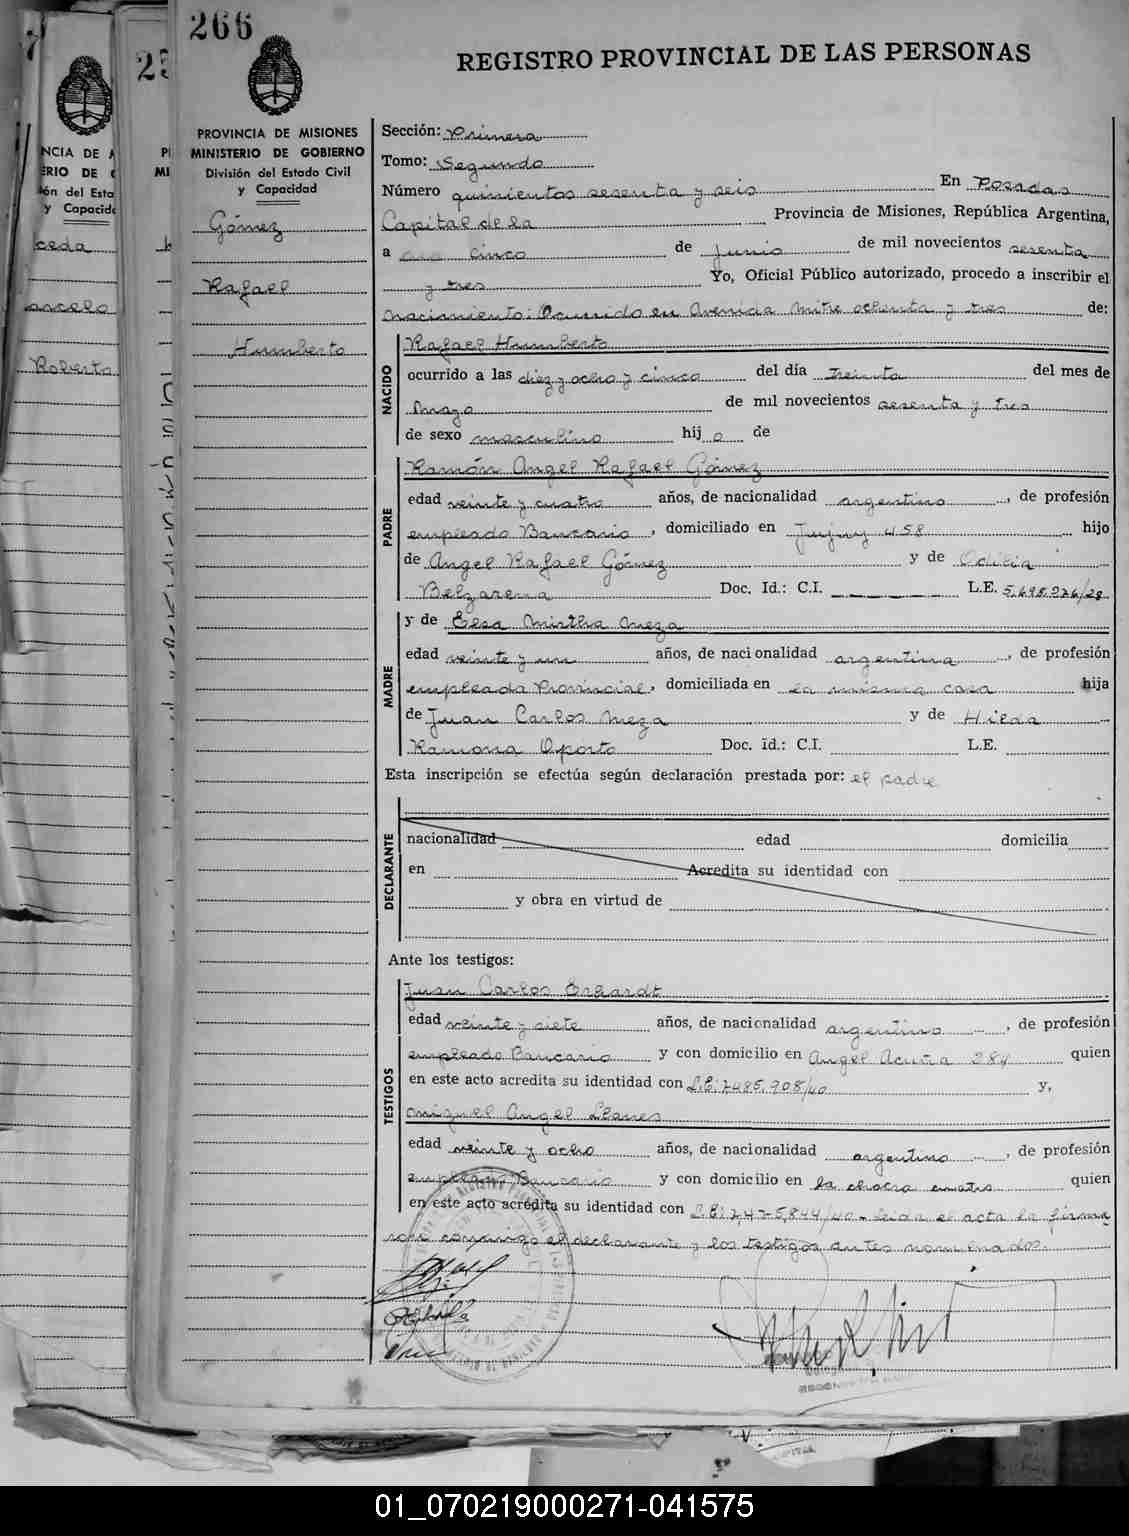 266
REGISTRO PROVINCIAL DE LAS PERSONAS
PROVINCIA DE MISIONES
MINISTERIO DE GOBIERNO
División del Estado Civil
y Capacidad
Gómez
Rafael
Humberto
Sección: Primera
Tomo: Segundo
Número quinientos sesenta y seis En Posadas
Capital de la Provincia de Misiones, República Argentina,
a cinco de junio de mil novecientos sesenta
y tres Yo, Oficial Público autorizado, procedo a inscribir el
nacimiento: Ocurrido en Avenida Mitre ochenta y tres de:
NACIDO
Rafael Humberto
ocurrido a las diez y ocho y cinco del día treinta del mes de
mayo de mil novecientos sesenta y tres
de sexo masculino hij o de
PADRE
Ramón Angel Rafael Gómez
edad veinte y cuatro años, de nacionalidad argentino, de profesión
empleado Bancario, domiciliado en Jujuy 458 hijo
de Angel Rafael Gómez y de Odilia
Belzarena Doc. Id.: C.I. L.E.
MADRE
y de Elsa Mirtha Meza
edad veinte y un años, de nacionalidad argentina, de profesión
empleada Provincial, domiciliada en la misma casa hija
de Juan Carlos Meza y de Hilda
Ramona Oporto Doc. Id.: C.I. L.E.
Esta inscripción se efectúa según declaración prestada por: el padre
DECLARANTE
nacionalidad edad domicilia
en Acredita su identidad con
y obra en virtud de
Ante los testigos:
TESTIGOS
Juan Carlos Erhardt
edad veinte y siete años, de nacionalidad argentino, de profesión
empleado Bancario y con domicilio en Angel Acuña 284 quien
en este acto acredita su identidad con L.E: 7485.908/40 y,
Miguel Angel Llanes
edad veinte y ocho años, de nacionalidad argentino, de profesión
empleado Bancario y con domicilio en la chacra cuatro quien
en este acto acredita su identidad con L.E: 7,475,844/40 - leída el acta la firman
conmigo el declarante y los testigos antes nombrados.
01_070219000271-041575